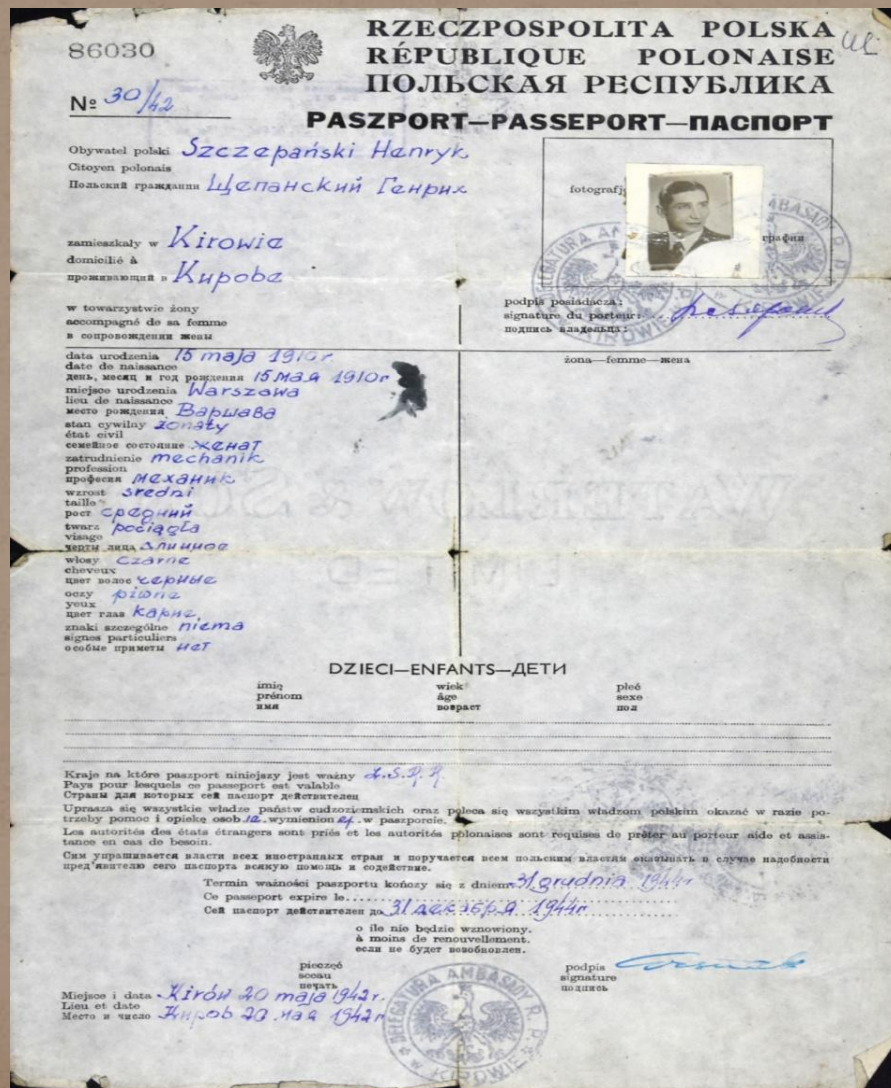 86030
RZECZPOSPOLITA POLSKA
RÉPUBLIQUE POLONAISE
ПОЛЬСКАЯ РЕСПУБЛИКА
№ 30/42
PASZPORT—PASSEPORT—ПАСПОРТ
Obywatel polski Szczepański Henryk
Citoyen polonais
Польский гражданин Щепанский Генрих
fotografj
графии
zamieszkały w Kirowie
domicilié à
проживающий в Кирове
DELEGATURA AMBASADY R. P. w KIROWIE
w towarzystwie żony
accompagné de sa femme
в сопровождении жены
podpis posiadacza:
signature du porteur:
подпись владельца:
data urodzenia 15 maja 1910r.
date de naissance
день, месяц и год рождения 15 мая 1910г
żona—femme—жена
miejsce urodzenia Warszawa
lieu de naissance
место рождения Варшава
stan cywilny żonaty
état civil
семейное состояние женат
zatrudnienie mechanik
profession
професия механик
wzrost średni
taille
рост средний
twarz pociągła
visage
черты лица длинное
włosy czarne
cheveux
цвет волос черные
oczy piwne
yeux
цвет глаз карие
znaki szczególne niema
signes particuliers
особые приметы нет
WATERLOW & SO
LIMITED
DZIECI—ENFANTS—ДЕТИ
imię wiek płeć
prénom âge sexe
имя возраст пол
Kraje na które paszport niniejszy jest ważny Z.S.R.R.
Pays pour lesquels ce passeport est valable
Страны для которых сей паспорт действителен
Uprasza się wszystkie władze państw cudzoziemskich oraz poleca się wszystkim władzom polskim okazać w razie po-
trzeby pomoc i opiekę osobie wymienionej w paszporcie.
Les autorités des états étrangers sont priés et les autorités polonaises sont requises de prêter au porteur aide et assis-
tance en cas de besoin.
Сим упрашивается власти всех иностранных стран и поручается всем польским властям оказывать в случае надобности
пред'явителю сего паспорта всякую помощь и содействие.
Termin ważności paszportu kończy się z dniem 31 grudnia 1944r
Ce passeport expire le
Сей паспорт действителен до 31 декабря 1944г
o ile nie będzie wznowiony.
à moins de renouvellement.
если не будет возобновлен.
pieczęć
sceau
печать
podpis
signature
подпись
Miejsce i data Kirów 20 maja 1942r.
Lieu et date
Место и число Киров 20 мая 1942г
DELEGATURA AMBASADY R. P. w KIROWIE